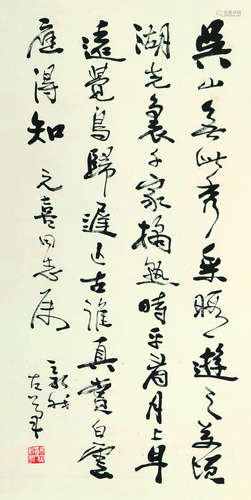 吳山無此秀乘暇一遊之萬頃
湖光裏千家橘熟時平看月上早
遠覺鳥歸遲近古誰真賞白雲
應得知 元喜同志屬
新我左筆